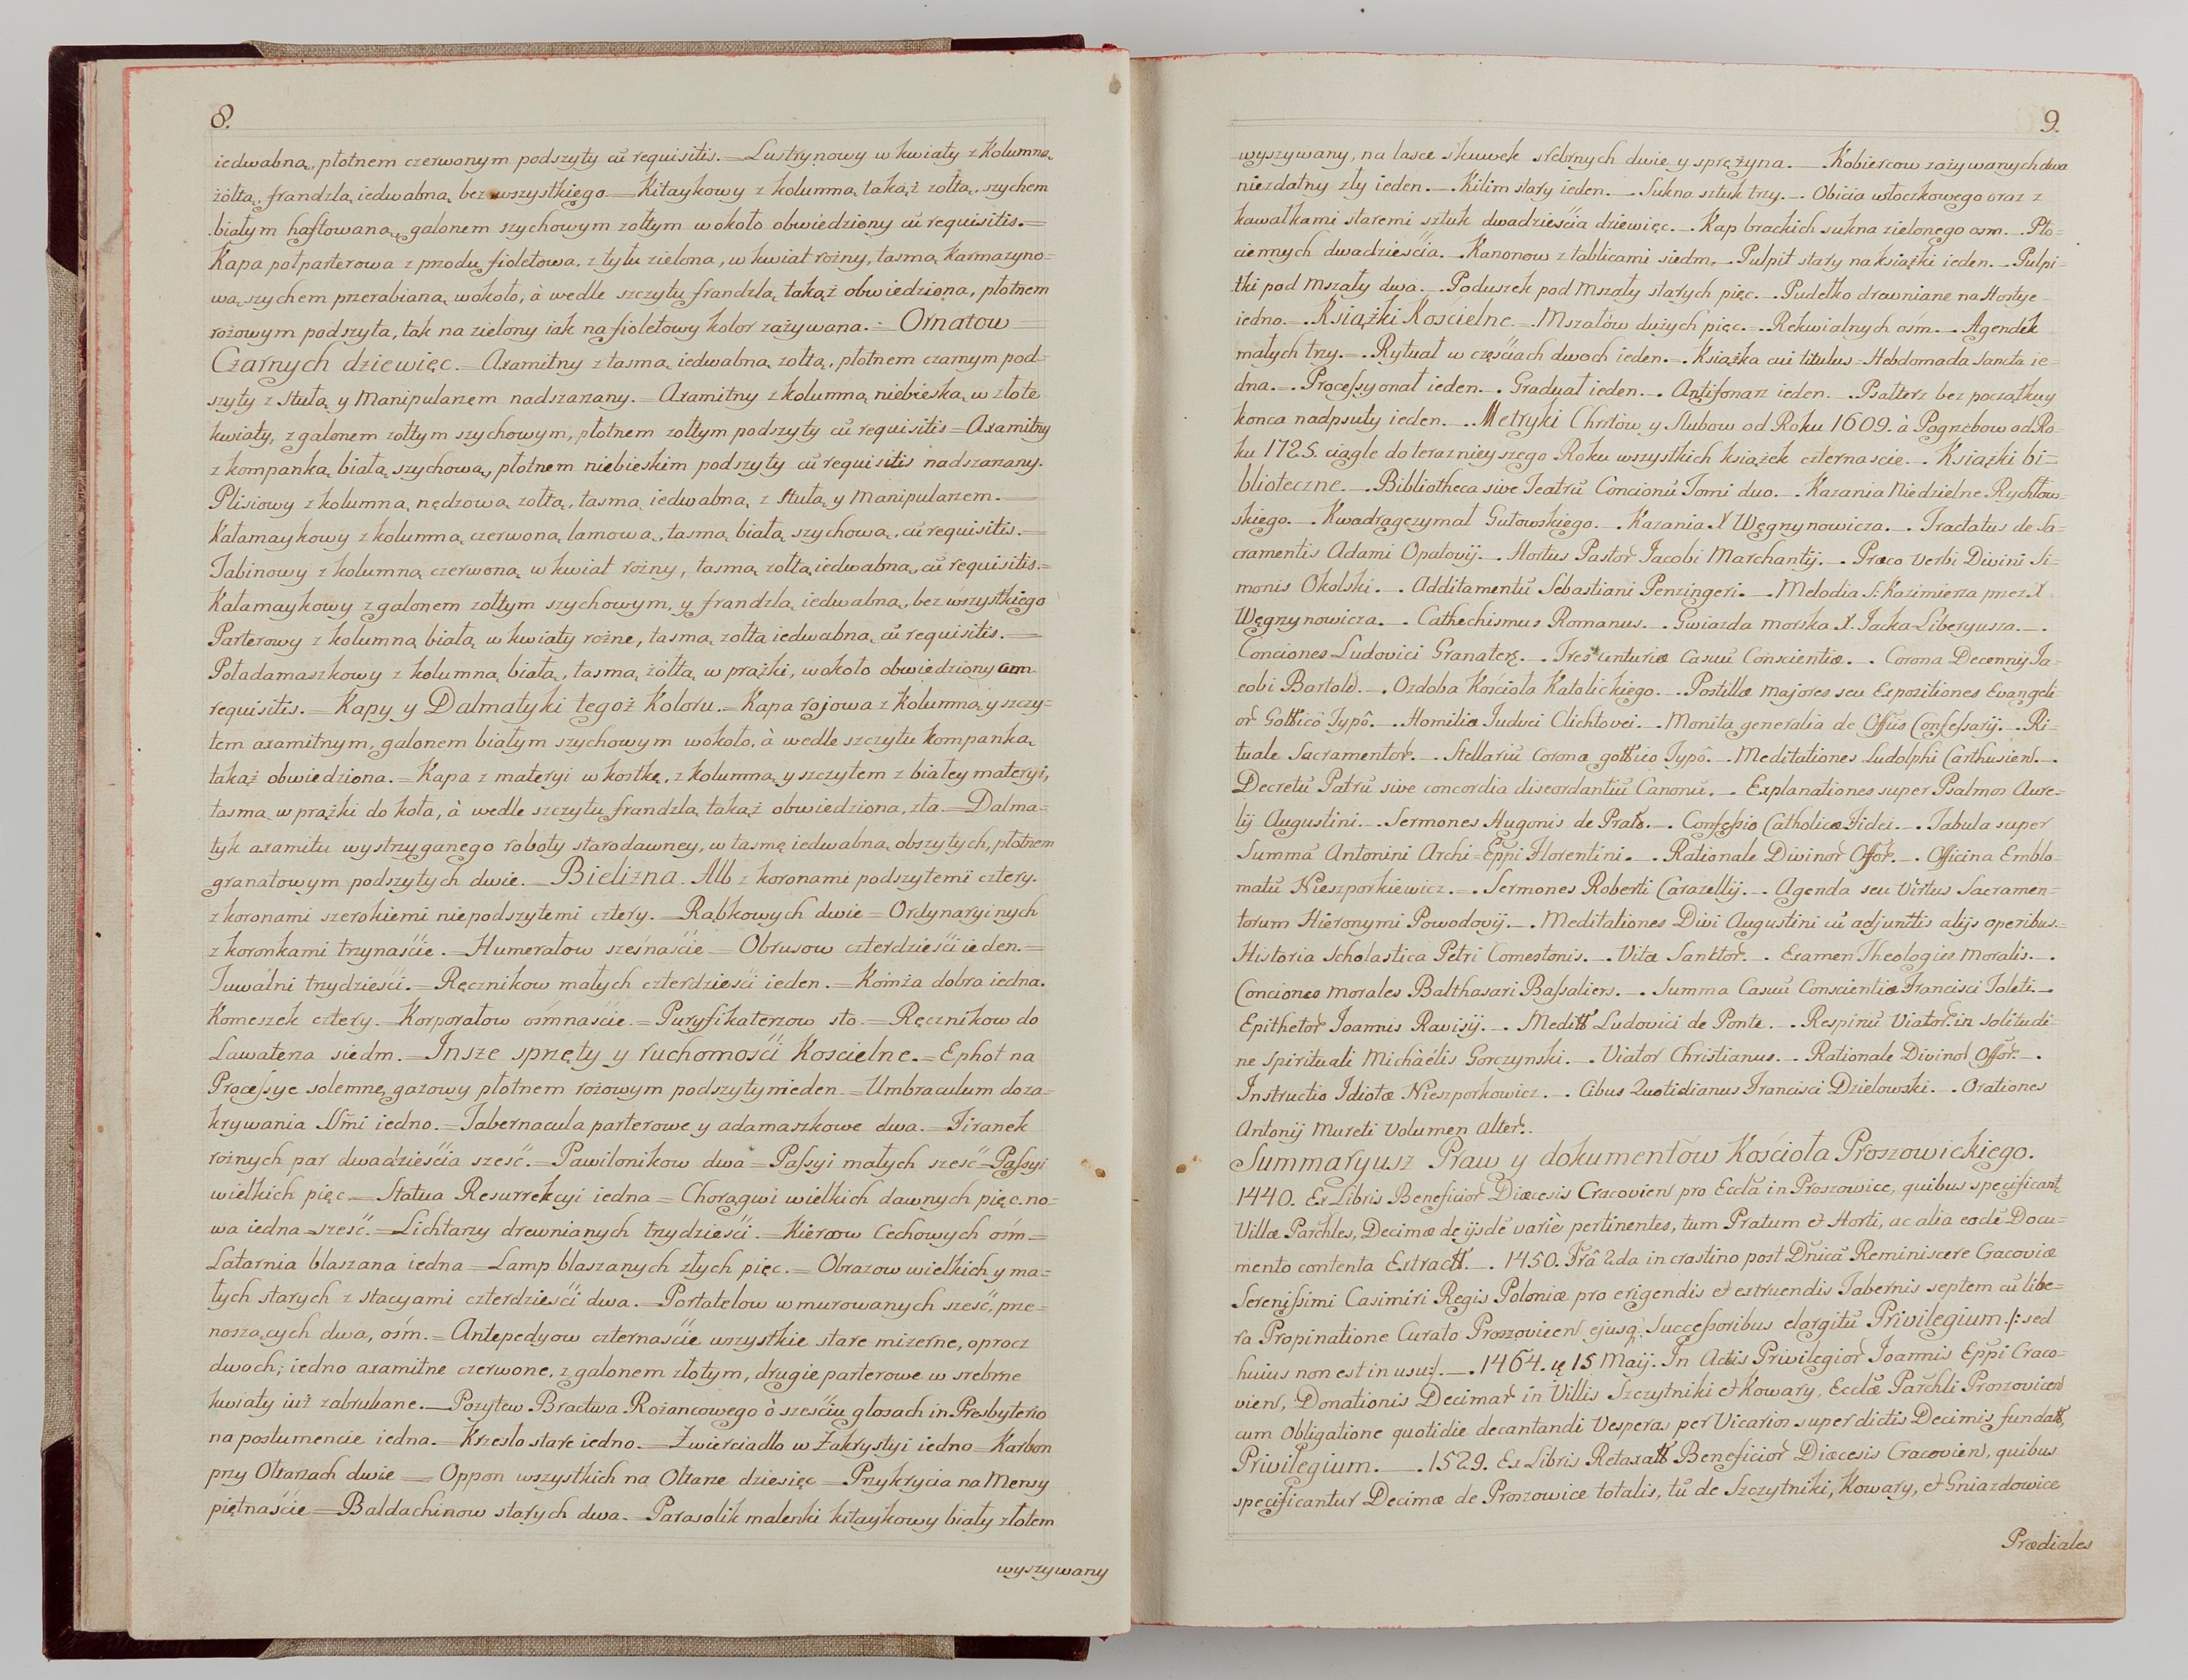 8.
iedwabną, płotnem czerwonym podszyty cū requisitis. = Lustrynowy w kwiaty z kolumną
żółtą, frandzlą iedwabną, bez wszystkiego = Kitaykowy z kolumną takąż zołtą, szychem
białym haftowaną, galonem szychowym zołtym wokoło obwiedziony cū requisitis. =
Kapa połparterowa z przodu fioletowa, z tyłu zielona, w kwiat rożny, tasmą karmazyno=
wą szychem przerabianą wokoło, à wedle szczytu frandzlą takąż obwiedziona, płotnem
rożowym podszyta, tak na zielony iak na fioletowy kolor zażywana. = Ornatow =
Czarnych dziewięc. = Axamitny z tasmą iedwabną zołtą, płotnem czarnym pod=
szyty z Stułą y Manipularzem nadszarzany. = Axamitny z kolumną niebieską w złote
kwiaty, z galonem zołtym szychowym, płotnem zołtym podszyty cū requisitis = Axamitny
z kompanką białą szychową, płotnem niebieskim podszyty cū requisitis nadszarzany.
Plisiowy z kolumną nędzową zołtą, tasmą iedwabną, z Stułą y Manipularzem. =
Kałamaykowy z kolumną czerwoną lamową, tasmą białą szychową, cū requisitis. =
Tabinowy z kolumną czerwoną w kwiat rożny, tasmą zołtą iedwabną, cū requisitis. =
Kałamaykowy z galonem zołtym szychowym, y frandzlą iedwabną, bez wszystkiego
Parterowy z kolumną białą w kwiaty rożne, tasmą zołtą iedwabną cū requisitis. =
Poładamaszkowy z kolumną białą, tasmą żółtą w prążki, wokoło obwiedziony cum
requisitis. = Kapy y Dalmatyki tegoż Koloru. = Kapa rojowa z Kolumną y szczy=
tem axamitnym, galonem białym szychowym wokoło, à wedle szczytu kompanką
takąż obwiedziona. = Kapa z materyi w kostkę, z kolumną y szczytem z białey materyi,
tasmą w prążki do koła, à wedle szczytu frandzlą takąż obwiedziona, zła = Dalma=
tyk axamitu wystrzyganego roboty starodawney, w tasmę iedwabną obszytych, płotnem
granatowym podszytych dwie. = Bielizna. Alb z koronami podszytemi cztery.
z koronami szerokiemi niepodszytemi cztery. = Rąbkowych dwie = Ordynaryinych
z koronkami trzynaście. = Humerałow szesnaście = Obrusow czterdzieści ieden. =
Tuwalni trzydzieści. = Ręcznikow małych czterdzieści ieden. = Kómża dobra iedna.
Komeszek cztery. = Korporałow ośmnaście. = Puryfikaterzow sto. = Ręcznikow do
Lawaterza siedm. = Insze sprzęty y ruchomości Koscielne. = Ephot na
Processye solemne, gazowy płotnem rożowym podszyty ieden. = Umbraculum do za=
krywania Ssmi iedno. = Tabernacula parterowe y adamaszkowe dwa. = Firanek
rożnych par dwadzieścia sześć. = Pawilonikow dwa = Passyi małych sześć = Passyi
wielkich pięc = Statua Resurrekcyi iedna = Chorągwi wielkich dawnych pięc. no=
wa iedna = sześć. = Lichtarzy drewnianych trzydzieści. = Kierow Cechowych ośm =
Latarnia blaszana iedna = Lamp blaszanych złych pięc. = Obrazow wielkich y ma=
łych starych z stacyami czterdzieści dwa. = Portatelow wmurowanych sześć, prze=
noszących dwa, ośm. = Antepedyow czternaście wszystkie stare mizerne, oprocz
dwoch; iedno axamitne czerwone, z galonem złotym, drugie parterowe w srebrne
kwiaty iuż zabrukane. = Pozytew Bractwa Rożancowego ò sześciu głosach in Presbyterio
na postumencie iedna. = Krzesło stare iedno. = Zwierciadło w Zakrystyi iedno = Karbon
przy Ołtarzach dwie = Oppon wszystkich na Ołtarze dziesięc = Przykrycia na Mensy
piętnaście = Baldachinow starych dwa. = Parasolik malenki kitaykowy biały złotem
wyszywany
9.
wyszywany, na lasce skuwek srebrnych dwie y sprężyna. _. Kobiercow zażywanych dwa
niezdatny zły ieden. _. Kilim stary ieden. _. Sukna sztuk trzy. _. Obicia włoczkowego oraz z
kawałkami staremi sztuk dwadzieścia dziewięc. _. Kap brackich sukna zielonego osm. _. Pło=
ciennych dwadzieścia. _. Kanonow z tablicami siedm. _. Pulpit stary na książki ieden. _. Pulpi=
tki pod Mszały dwa. _. Poduszek pod Mszały starych pięc. _. Pudełko drewniane na Hostye
iedno. _. Książki Koscielne _. Mszałów dużych pięc. _. Rekwialnych ośm. _. Agendek
małych trzy. _. Rytuał w częściach dwoch ieden. _. Książka cui titulus = Hebdomada Sancta ie=
dna. _. Processyonał ieden. _. Graduał ieden. _. Antifonarz ieden. _. Psałterz bez początku y
konca nadpsuty ieden. _. Metryki Chrztow y Slubow od Roku 1609. à Pogrzebow od Ro=
ku 1725. ciągle do teraznieyszego Roku wszystkich książek czternascie. _. Książki bi=
blioteczne. _. Bibliotheca sive Teatrū Concionū Tomi duo. _. Kazania Niedzielne Rychłow=
skiego. _. Kwadragezymał Gutowskiego. _. Kazania X Węgrzynowicza. _. Tractatus de Sa=
cramentis Adami Opatovij. _. Hortus Pastor Iacobi Marchantij. _. Præco Verbi Divini Si=
monis Okolski. _. Additamentū Sebastiani Penzingeri. _. Melodia S: Kazimierza przez X
Węgrzynowicza. _. Cathechismus Romanus. _. Gwiazda morska X. Jacka Liberyusza. _.
Conciones Ludovici Granateń. _. Tres Centuriæ Casuū Conscientiæ. _. Corona Decennij Ia=
cobi Bartold. _. Ozdoba Kościoła Katolickiego. _. Postillæ majores seu Expositiones Evangeli
or Gotticô Typô. _. Homiliæ Iudoci Clichtovei. _. Monita generalia de Offiis Confessarij. _. Ri=
tuale Sacramentor. _. Stellariū Corona gottico Typô. _. Meditationes Ludolphi Carthusień. _.
Decretū Patrū sive concordia discordantiū Canonū. _. Explanationes super Psalmos Aure=
lij Augustini. _. Sermones Hugonis de Prato. _. Confessio Catholicæ Fidei. _. Tabula super
Summā Antonini Archi=Eppi Florentini. _. Rationale Divinor Offor. _. Officina Emblo=
matū Nieszporkiewicz. _. Sermones Roberti Carazellij. _. Agenda seu Virtus Sacramen=
torum Hieronymi Powodovij. _. Meditationes Divi Augustini cū adjunctis alijs operibus. =
Historia Scholastica Petri Comestonis. _. Vitæ Sanctor. _. Examen Theologiæ Moralis. _.
Conciones morales Balthasari Bassaliers. _. Summa Casuū Conscientiæ Francisci Toleti. _.
Epithetor Joannis Ravisij. _. Medit Ludovici de Ponte. _. Respinū Viator in solitudi=
ne spirituali Michàélis Gorczynski. _. Viator Christianus. _. Rationale Divinor Offor. _.
Instructio Idiotæ Nieszporkowicz. _. Cibus Quotidianus Francisci Dzielowski. _. Orationes
Antonij Mureti Volumen Alter.
Summaryusz Praw y dokumentów Kościoła Proszowickiego.
1440. Ex Libris Beneficior Diœcesis Cracovień pro Ecclā in Proszowice, quibus specificantr
Villæ Parchles, Decimæ de ijsdē variè pertinentes, tum Pratum et Horti, ac alia eodē Docu=
mento contenta Extract. _. 1450. Frâ 2da in crastino post Dnicā Reminiscere Cracoviæ
Serenissimi Casimiri Regis Poloniæ pro erigendis et extruendis Tabernis septem cū libe=
ra Propinatione Curato Proszovień ejusq. Successoribus elargitū Privilegium /: sed
huius non est in usu :/. _. 1464. 15 Maij. In Actis Privilegior Joannis Eppi Craco=
vień, Donationis Decimar in Villis Szczytniki et Kowary, Ecclæ Parchli Proszovicen
cum Obligatione quotidie decantandi Vesperas per Vicarios super dictis Decimis fundat,
Privilegium. _. 1529. Ex Libris Retaxat Beneficior Diœcesis Cracovień, quibus
specificantur Decimæ de Proszowice totalis, tū de Szczytniki, Kowary, et Gniazdowice
Prædiales